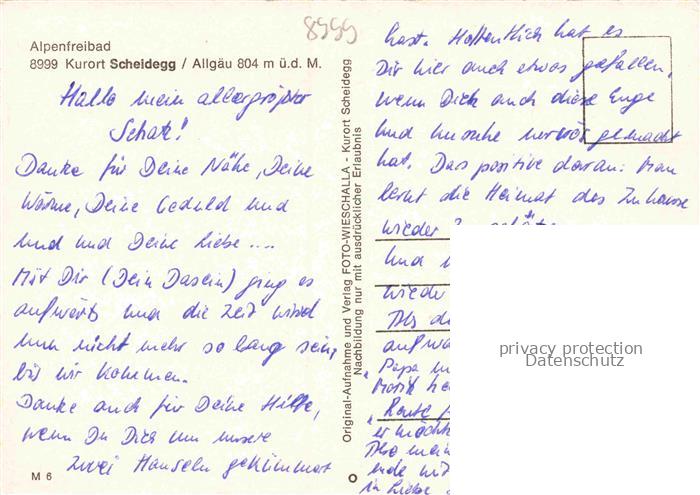 8999
Alpenfreibad
8999 Kurort Scheidegg / Allgäu 804 m ü.d. M.
Hallo mein allergrößter
Schatz!
Danke für Deine Nähe, Deine
Wärme, Deine Geduld und
und und Deine Liebe ....
Mit Dir (Dein Dasein) ging es
aufwärts und die Zeit wird
nun nicht mehr so lang sein,
bis wir kommen.
Danke auch für Deine Hilfe,
wenn Du Dich um unsere
zwei Hanseln gekümmert
M 6
Original-Aufnahme und Verlag FOTO-WIESCHALLA - Kurort Scheidegg
Nachbildung nur mit ausdrücklicher Erlaubnis
hast. Hoffentlich hat es
Dir hier auch etwas gefallen,
wenn Dich auch diese Enge
und Unruhe nervös gemacht
hat. Das positive daran: Man
lernt die Heimat das Zuhause
wieder
und
wieder
aufwä
Papa
"Heute
er möcht
Also mein
ende
in Liebe
privacy protection
Datenschutz